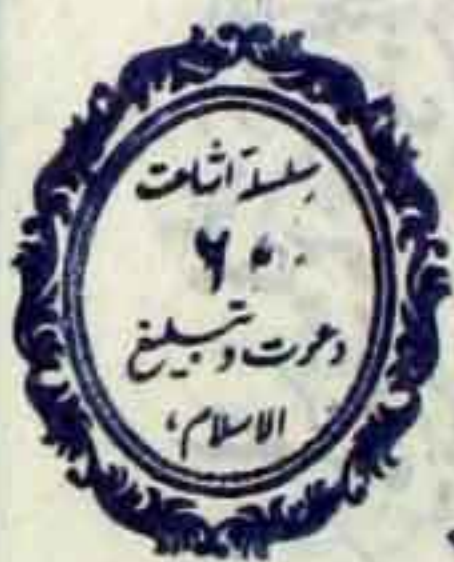 سلسلۂ اشاعت
۶
دعوت و تبلیغ
الاسلام،